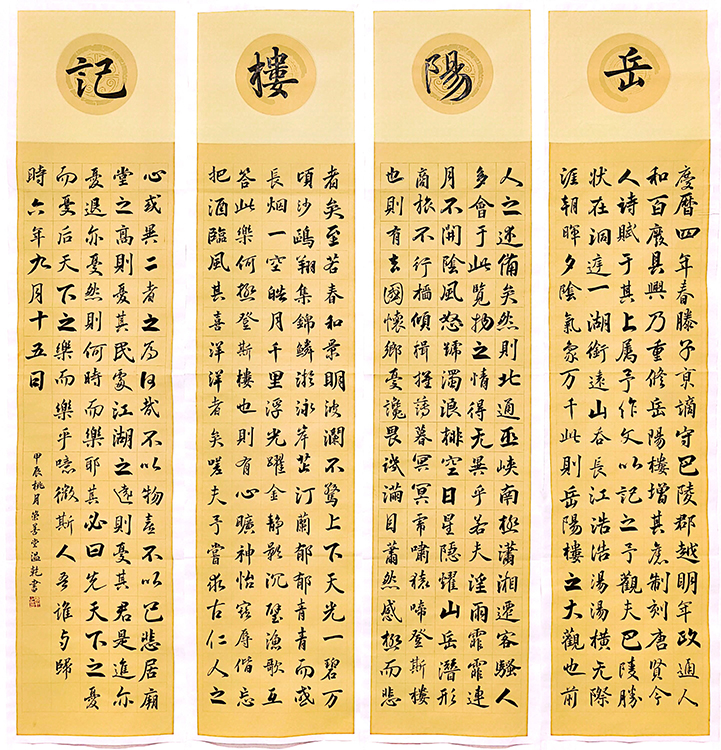 岳
慶曆四年春滕子京謫守巴陵郡越明年政通人
和百廢具興乃重修岳陽樓增其舊制刻唐賢今
人詩賦于其上屬予作文以記之予觀夫巴陵勝
狀在洞庭一湖銜遠山吞長江浩浩湯湯橫无際
涯朝暉夕陰氣象万千此則岳陽樓之大觀也前
陽
人之述備矣然則北通巫峽南極瀟湘遷客騷人
多會于此覽物之情得无異乎若夫淫雨霏霏連
月不開陰風怒號濁浪排空日星隱耀山岳潛形
商旅不行檣傾楫摧薄暮冥冥虎嘯猿啼登斯樓
也則有去國懷鄉憂讒畏譏滿目蕭然感極而悲
樓
者矣至若春和景明波瀾不驚上下天光一碧万
頃沙鷗翔集錦鱗游泳岸芷汀蘭郁郁青青而或
長烟一空皓月千里浮光躍金静影沉璧漁歌互
答此樂何極登斯樓也則有心曠神怡寵辱偕忘
把酒臨風其喜洋洋者矣嗟夫予嘗求古仁人之
記
心或異二者之為何哉不以物喜不以己悲居廟
堂之高則憂其民處江湖之遠則憂其君是進亦
憂退亦憂然則何時而樂耶其必曰先天下之憂
而憂后天下之樂而樂乎噫微斯人吾誰与歸
時六年九月十五日
甲辰桃月 榮善堂溫乾書